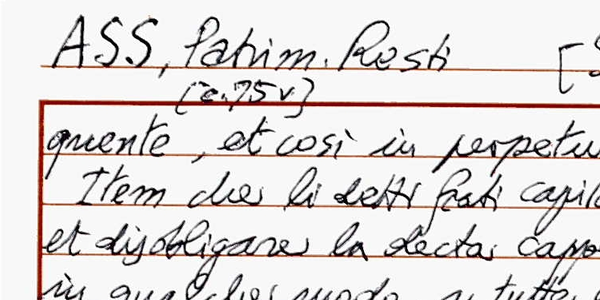 ASS, Patrim. Resti [S
[c. 75v]
quente, et così in perpetu
Item che li detti frati capi
et disobligare la decta capp
in qualche modo, tutte